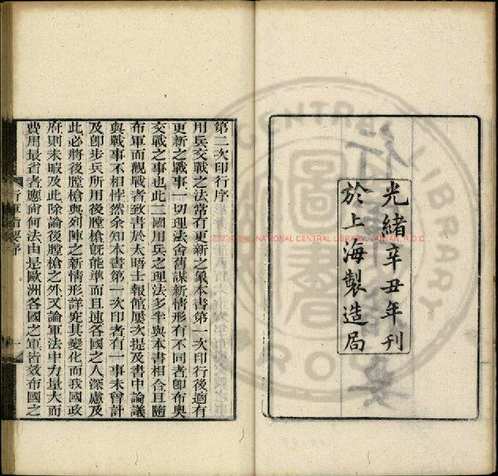 光緒辛丑年刊
於上海製造局
第二次印行序
用兵交戰之法常有更新之氣本書第一次印行後適有
更新之戰事一切理法會舊謀新情形有不同者卽布奧
交戰之事也此二國用兵之理法多半與本書相合且隨
布軍而觀戰者致書於太晤士報館屢次提及書中論議
與戰事不相悖然余於本書第一次印者有一事未曾計
及卽步兵所用後膛槍旣能準而且速各國之人深慮及
此必將後膛槍與列陣之新情形詳究其變化而我國政
府則未暇及此除論後膛槍之外又論軍法中力量大而
費用最省者應爲何法由是歐洲各國之軍皆效布國之
行軍指要序
一
NATIONAL CENTRAL LIBRARY